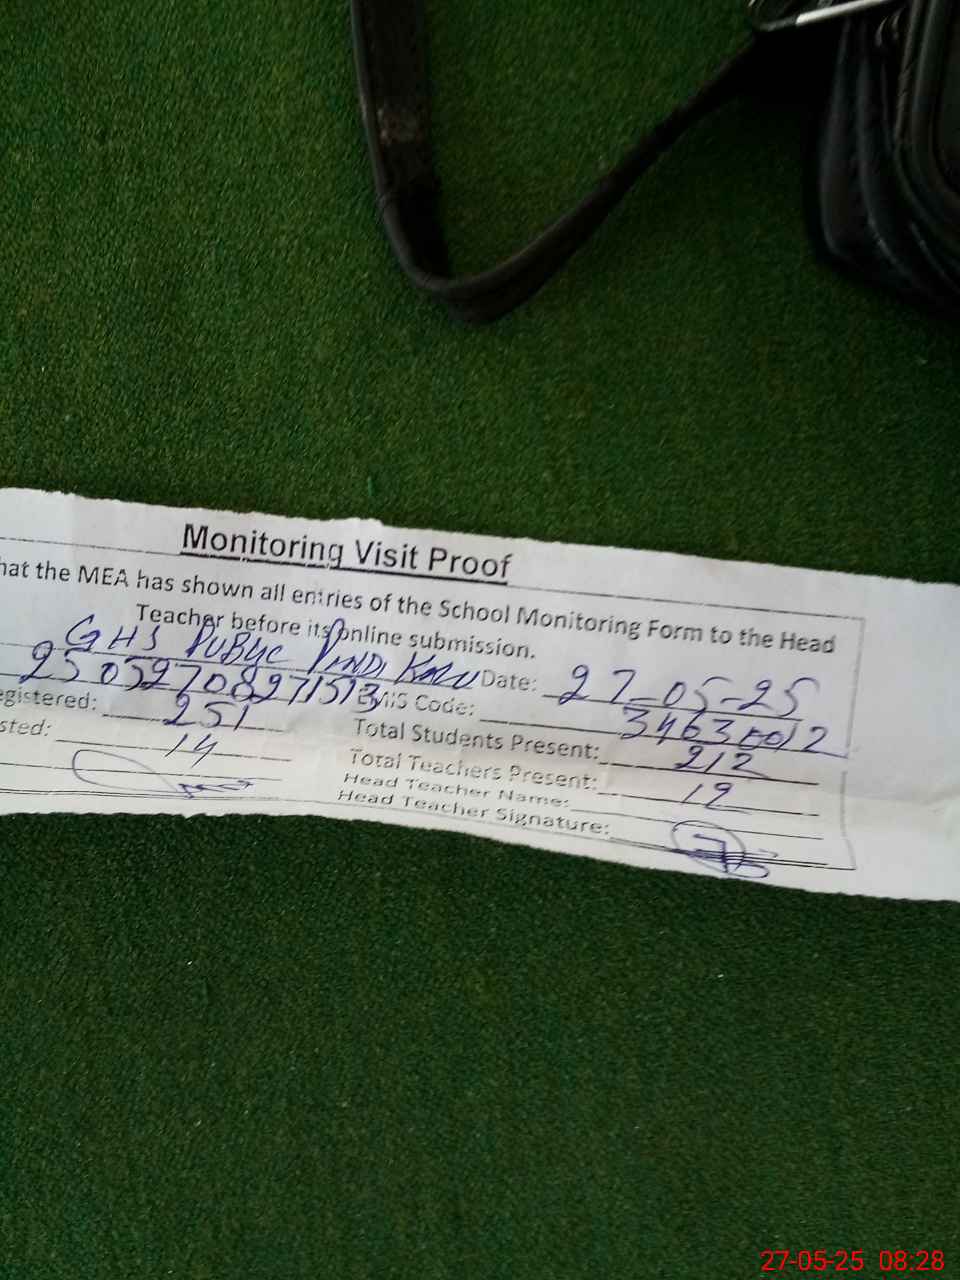 Monitoring Visit Proof
hat the MEA has shown all entries of the School Monitoring Form to the Head
Teacher before its online submission.
GHS PUBLIC PINDI KALU Date: 27-05-25
25052708271513 EMIS Code: 34630012
egistered: 251 Total Students Present: 212
sted: 14 Total Teachers Present: 19
Head Teacher Name:
Head Teacher Signature:
27-05-25 08:28